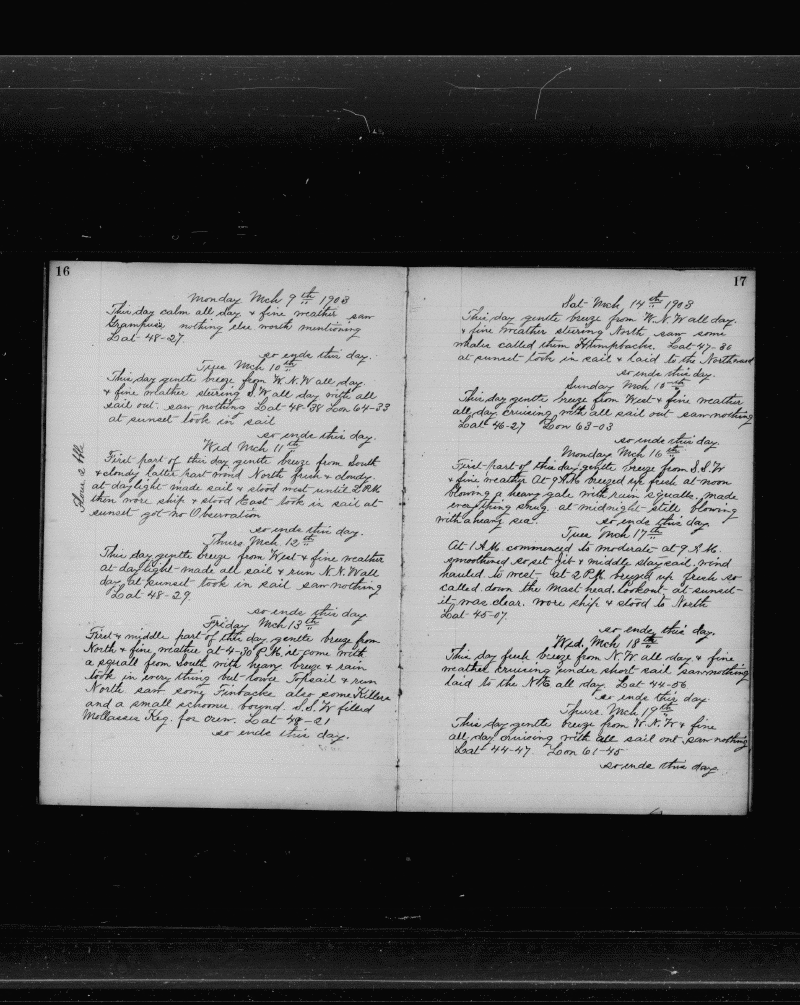 16
Monday Mch 9th 1903
This day calm all day & fine weather saw
Grampuss nothing else worth mentioning
Lat 48-27
so ends this day.
Tues Mch 10th
This day gentle breeze from W.N.W all day.
& fine weather steering S.W all day with all
sail out. saw nothing Lat 48-38 Lon 64-33
at sunset took in sail
so ends this day.
Wed Mch 11th
First part of this day gentle breeze from South
& cloudy latter part wind North fresh & cloudy.
at daylight made sail & stood west until 2 P.M.
then wore ship & stood East took in sail at
sunset got no Observation
so ends this day.
Flour a bbl
Thurs Mch 12th
This day gentle breeze from West & fine weather
at daylight made all sail & run N.N.W all
day at sunset took in sail saw nothing
Lat 48-29
so ends this day
Friday Mch 13th
First & middle part of this day gentle breeze from
North & fine weather at 4-30 P.M. it come with
a squall from South with heavy breeze & rain
took in every thing but lower Topsail & run
North saw some Finbacks also some Killers
and a small schooner bound S.S.W filled
Mollasses Keg. for crew. Lat 48-21
so ends this day.
17
Sat Mch 14th 1903
This day gentle breeze from W.N.W all day.
& fine weather steering North saw some
whales called them Humpbacks. Lat 47-30
at sunset took in sail & laid to the Northward
so ends this day.
Sunday Mch 15th
This day gentle breeze from West & fine weather
all day cruising with all sail out saw nothing
Lat 46-27 Lon 63-03
so ends this day.
Monday Mch 16th
First part of this day gentle breeze from S.S.W
& fine weather At 9 A.M. breezed up fresh at noon
blowing a heavy gale with rain squalls. made
everything snug. at midnight still blowing
with a heavy sea. so ends this day
Tues Mch 17th
At 1 A.M. commenced to moderate at 9 A.M.
smoothened so set jib & middle staysail. wind
hauled to west at 2 P.M. breezed up fresh so
called down the Mast head Lookout at sunset
it was clear. wore ship & stood to North
Lat 45-07
so ends this day.
Wed. Mch 18th
This day fresh breeze from N.W all day & fine
weather cruising under short sail saw nothing
laid to the N.E all day. Lat 44-56
so ends this day.
Thurs Mch 19th
This day gentle breeze from W.N.W & fine
all day cruising with all sail out saw nothing
Lat 44-47 Lon 61-45
so ends this day